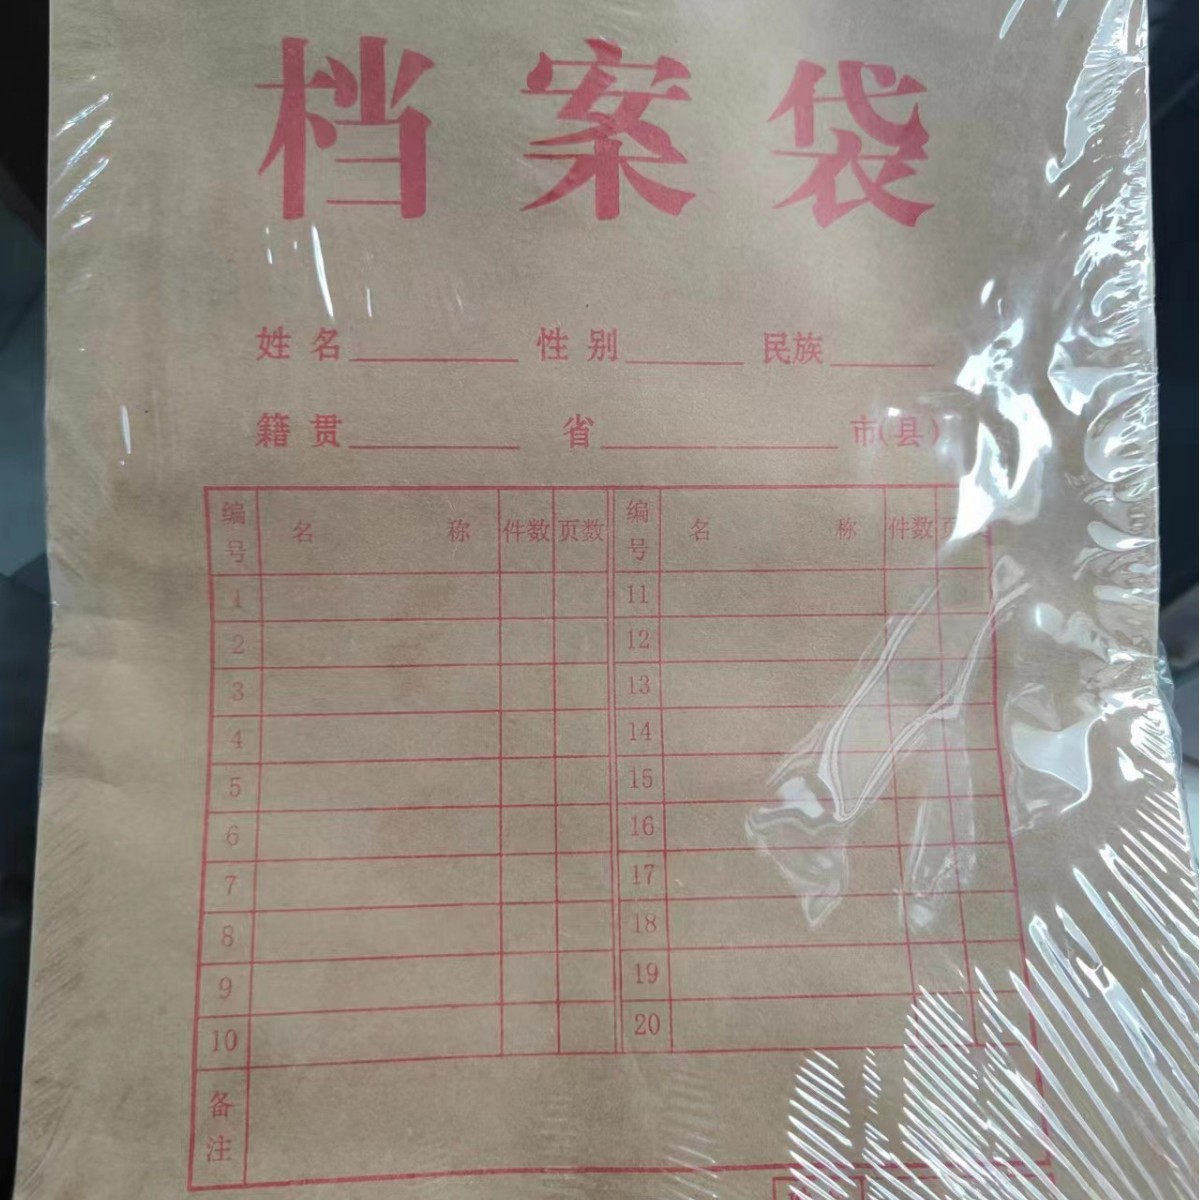 档案袋
姓名 性别 民族
籍贯 省 市(县)
编号 名称 件数 页数 编号 名称 件数
1 11
2 12
3 13
4 14
5 15
6 16
7 17
8 18
9 19
10 20
备注